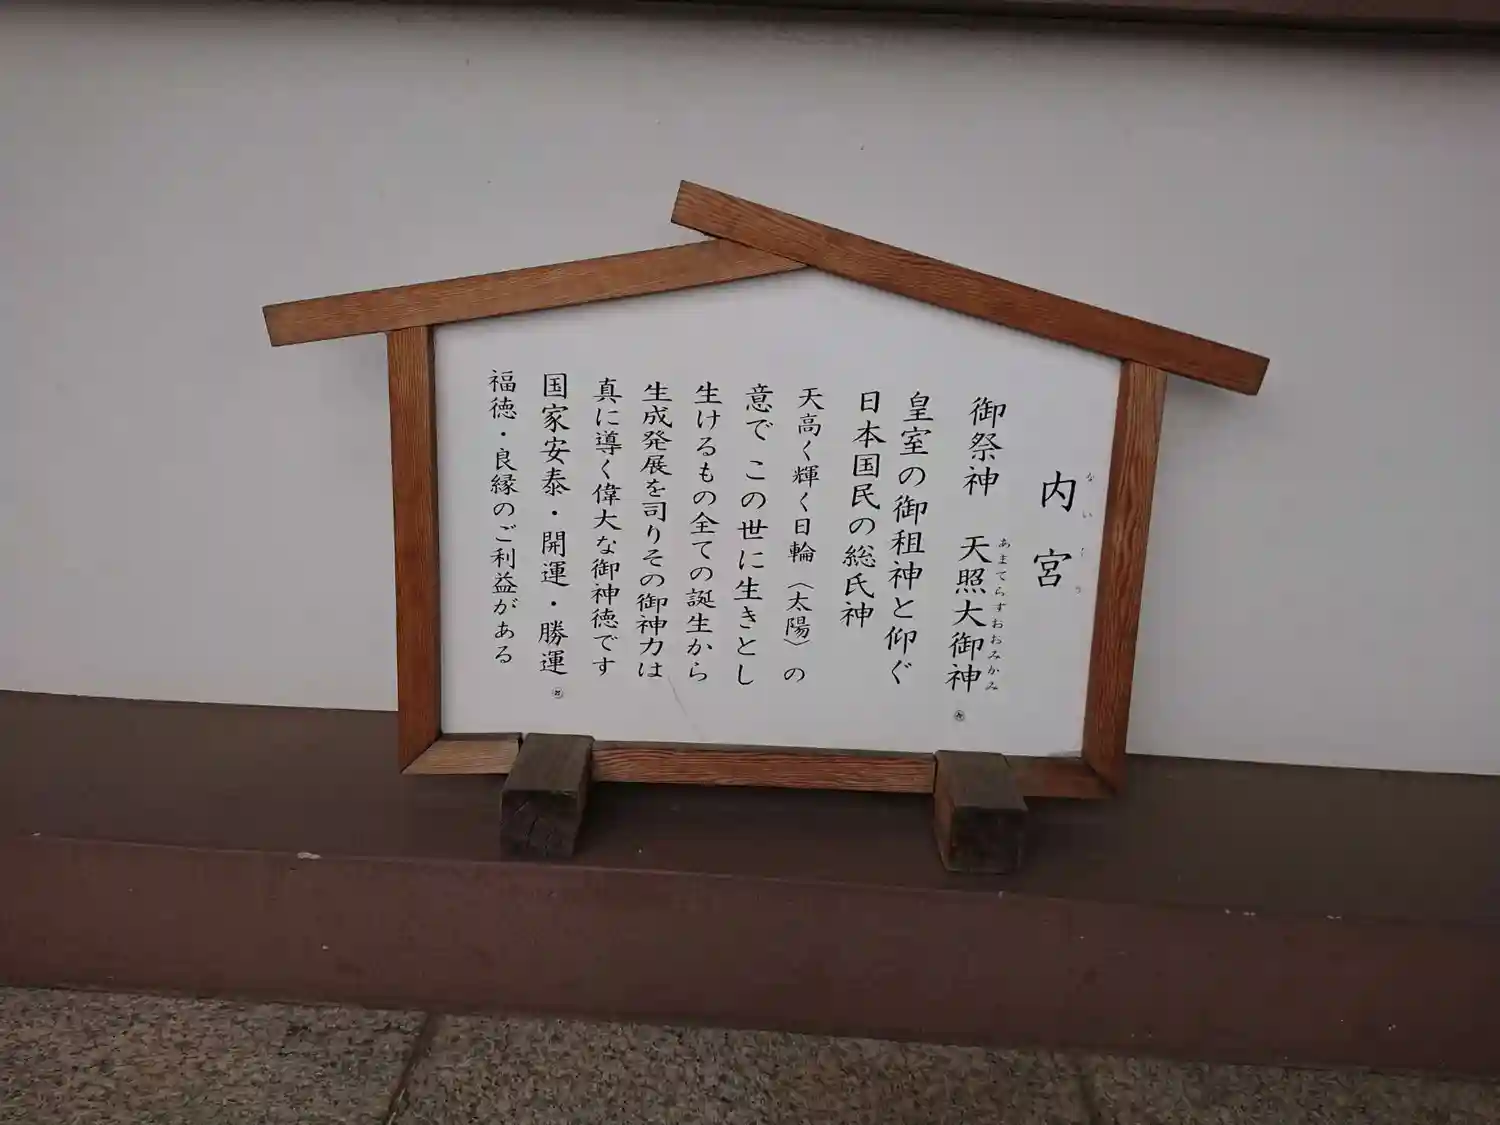 内宮
ないくう
御祭神 天照大御神
あまてらすおおみかみ
皇室の御祖神と仰ぐ
日本国民の総氏神
天高く輝く日輪〈太陽〉の
意で この世に生きとし
生けるもの全ての誕生から
生成発展を司りその御神力は
真に導く偉大な御神徳です
国家安泰・開運・勝運
福徳・良縁のご利益がある